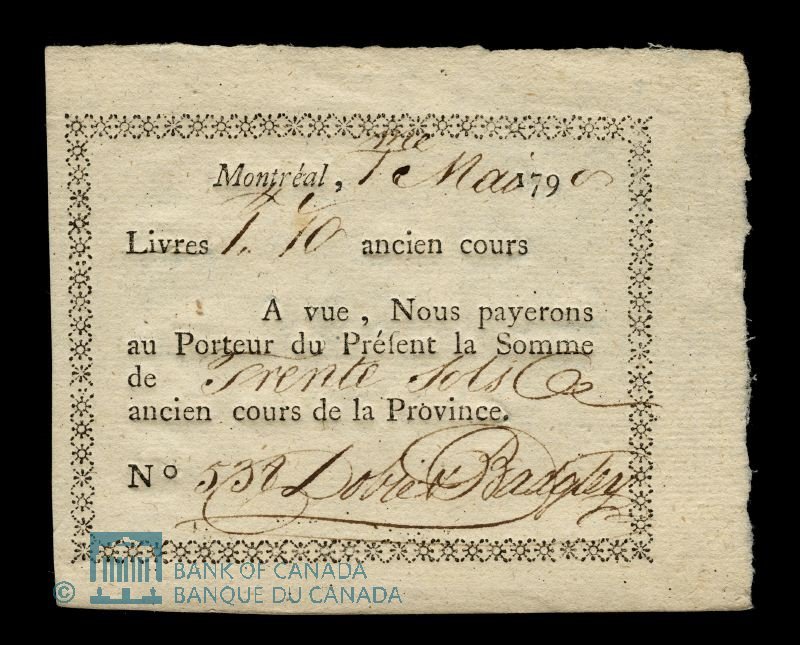 Montréal, 1me Mai 1790
Livres 1. 10 ancien cours
A vue, Nous payerons
au Porteur du Préſent la Somme
de Trente Sols
ancien cours de la Province.
No 538 Dobie & Badgley
© BANK OF CANADA
BANQUE DU CANADA